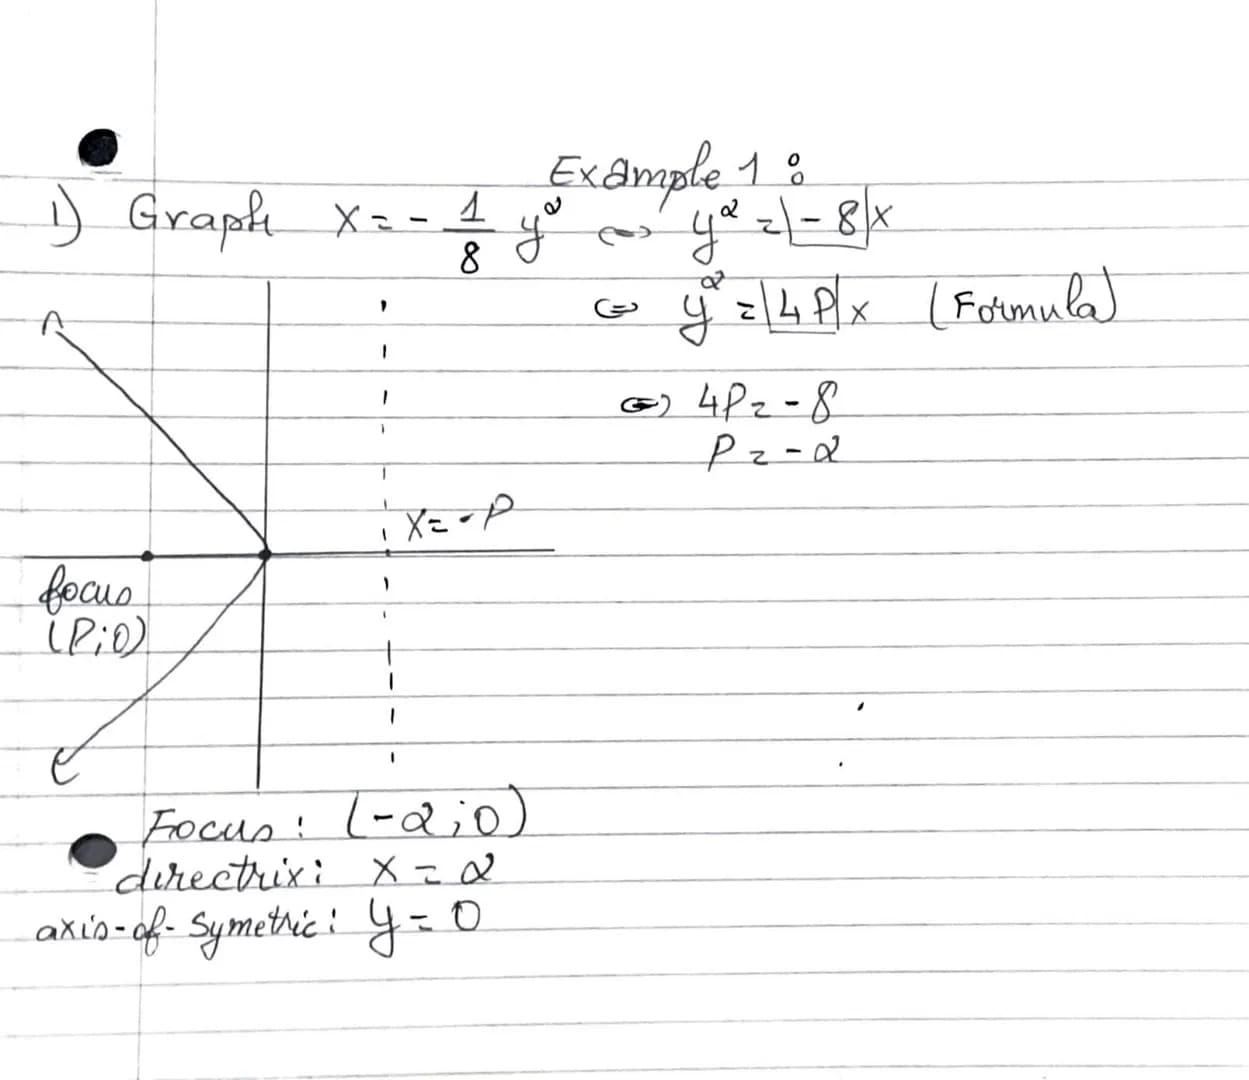 Example 1 :
1) Graph x = - 1/8 y² <=> y² = |-8| x
<=> y² = |4P| x (Formula)
<=> 4P = -8
P = -2
x = -P
focus
(P;0)
Focus: (-2;0)
directrix: x = 2
axis-of-Symetric: y = 0